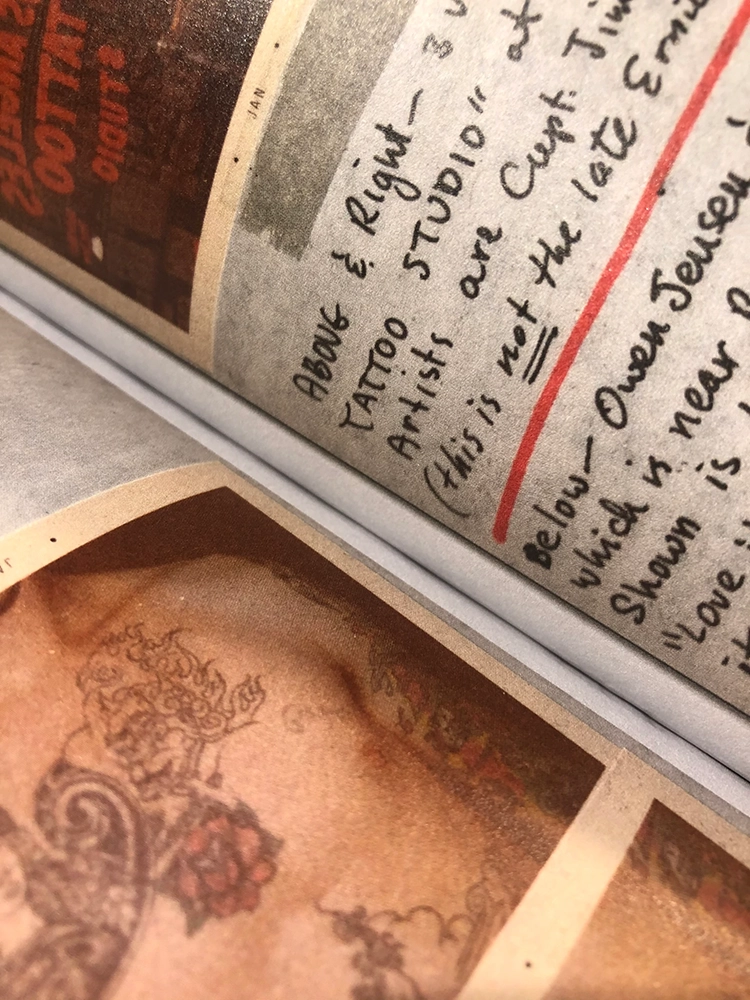 TATTOO
STUDIO
JAN
ABOVE & Right— 3
TATTOO STUDIO" at
Artists are Cupt. Jim
(this is not the late Ernie
Below— Owen Jensen
which is near
Shown is
"Love